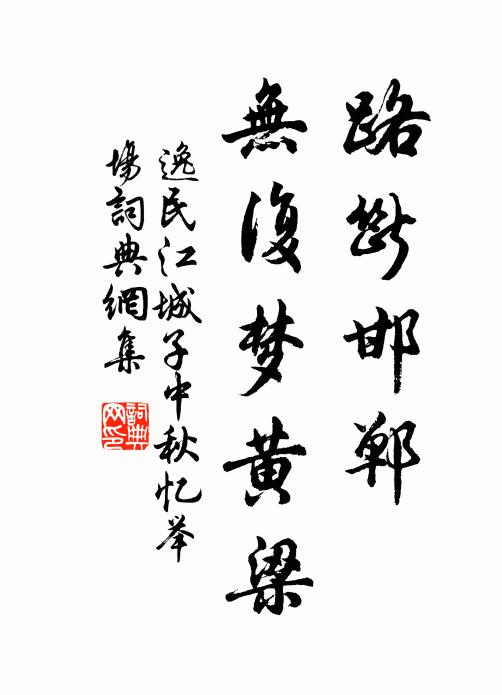 路断邯郸
無復梦黄梁
逸民江城子中秋忆举
場詞典網集
詞典网印